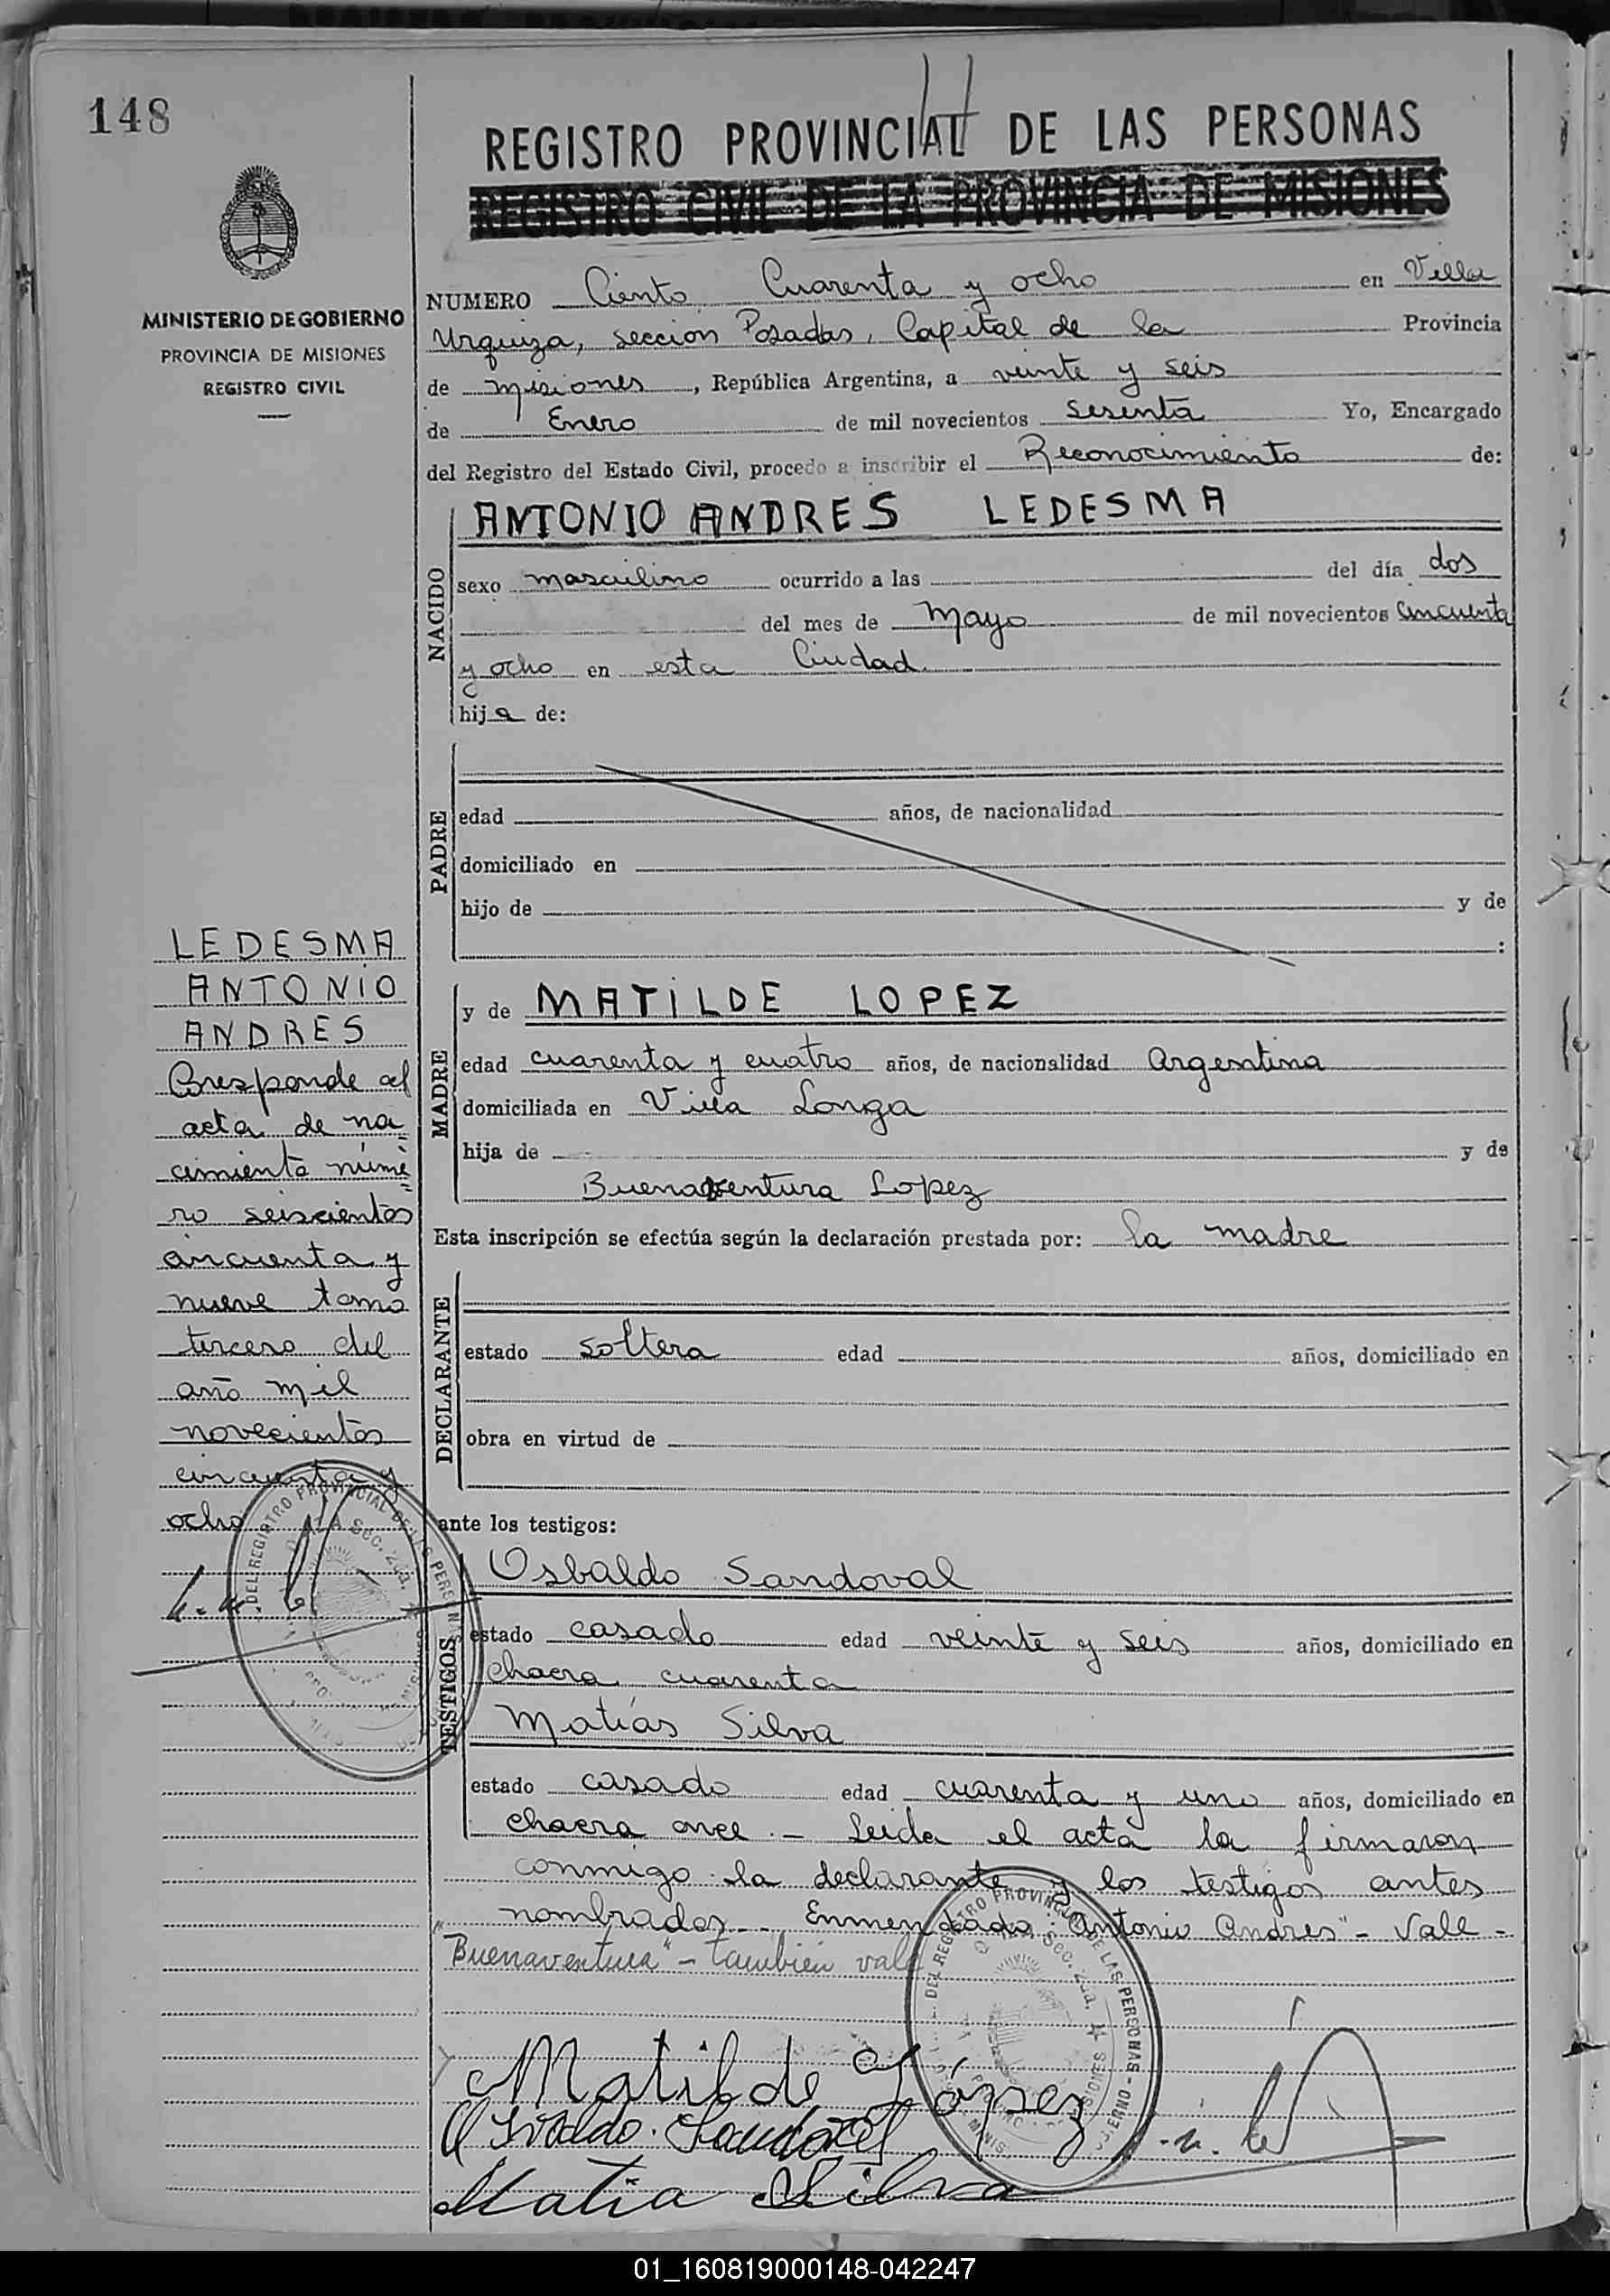 148
REGISTRO PROVINCIAL DE LAS PERSONAS
REGISTRO CIVIL DE LA PROVINCIA DE MISIONES
MINISTERIO DE GOBIERNO
PROVINCIA DE MISIONES
REGISTRO CIVIL
NUMERO Ciento Cuarenta y ocho en Villa
Urquiza, seccion Posadas, Capital de la Provincia
de misiones, República Argentina, a veinte y seis
de Enero de mil novecientos sesenta Yo, Encargado
del Registro del Estado Civil, procedo a inscribir el Reconocimiento de:
NACIDO
ANTONIO ANDRES LEDESMA
sexo masculino ocurrido a las del día dos
del mes de Mayo de mil novecientos cincuenta
y ocho en esta Ciudad.
hija de:
PADRE
edad años, de nacionalidad
domiciliado en
hijo de y de
:
MADRE
y de MATILDE LOPEZ
edad cuarenta y cuatro años, de nacionalidad Argentina
domiciliada en Villa Longa
hija de y de
Buenaventura Lopez
Esta inscripción se efectúa según la declaración prestada por: la madre
DECLARANTE
estado soltera edad años, domiciliado en
obra en virtud de
ante los testigos:
TESTIGOS
Osbaldo Sandoval
estado casado edad veinte y seis años, domiciliado en
chacra cuarenta
Matías Silva
estado casado edad cuarenta y uno años, domiciliado en
chacra once.- Leida el acta la firmaron
conmigo la declarante y los testigos antes
nombrados.- Enmendado: "Antonio Andres"- Vale-
"Buenaventura"- también vale
Matilde López
Osvaldo Sandoval
Matia Silva
LEDESMA
ANTONIO
ANDRES
Coresponde al
acta de na=
cimiento núme=
ro seiscientos
cincuenta y
nueve tomo
tercero del
año mil
novecientos
cincuenta y
ocho
DEL REGISTRO PROVINCIAL DE LAS PERSONAS
Sec. 2da.
DEL REGISTRO PROVINCIAL DE LAS PERSONAS
Sec. 2da.
01_160819000148-042247